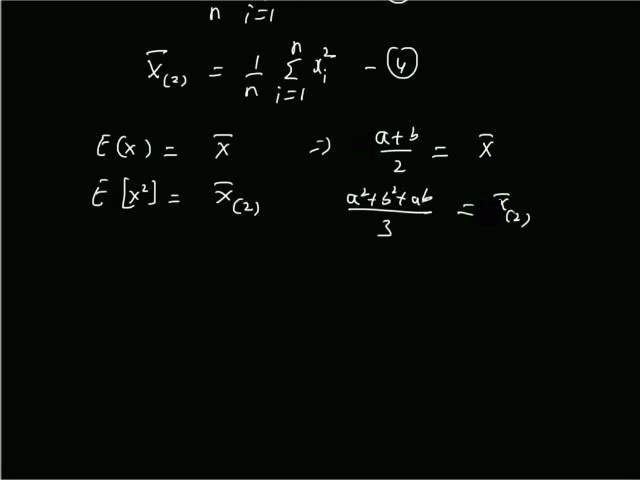 n i=1
x̄₍₂₎ = 1/n ∑ⁿᵢ₌₁ xᵢ² - ④
E(x) = x̄ ⇒ (a+b)/2 = x̄
E[x²] = x̄₍₂₎ (a²+b²+ab)/3 = x̄₍₂₎